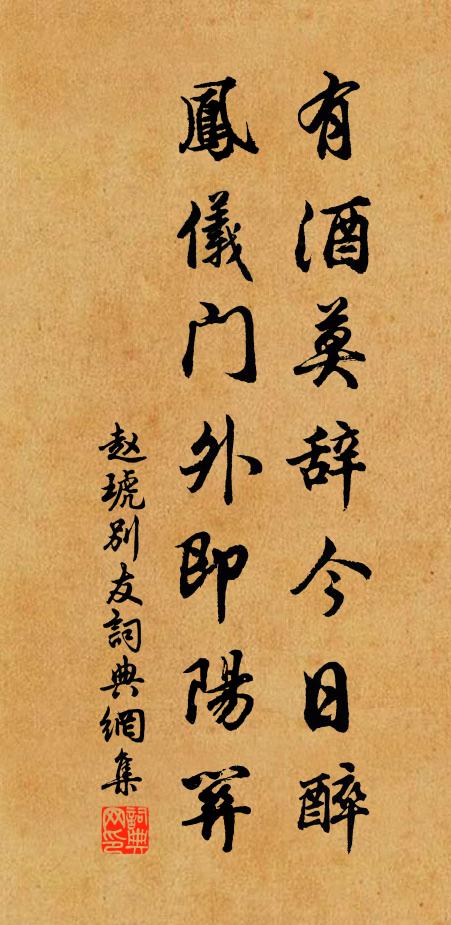 有酒莫辞今日醉
鳳儀门外即陽関
赵琥别友詞典網集
詞典网印